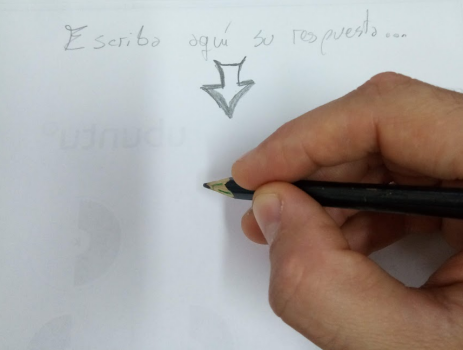 Escriba aquí su respuesta...
ubuntu®